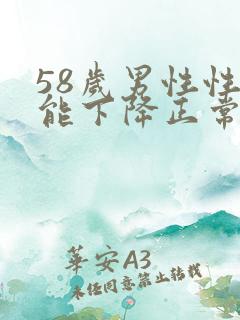 58歲男性性
能下降正常
華安A3
未经同意禁止转载